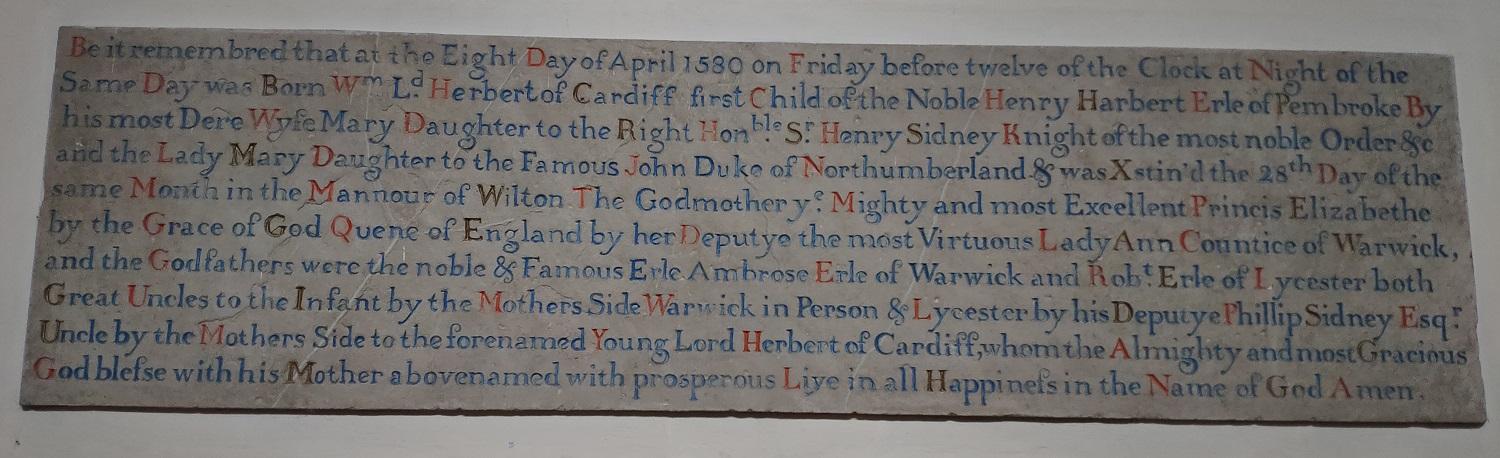 Be it remembred that at the Eight Day of April 1580 on Friday before twelve of the Clock at Night of the
Same Day was Born Wm Ld Herbert of Cardiff first Child of the Noble Henry Harbert Erle of Pembroke By
his most Dere Wyfe Mary Daughter to the Right Honble. Sr. Henry Sidney Knight of the most noble Order &c
and the Lady Mary Daughter to the Famous John Duke of Northumberland & was Xstin'd the 28th Day of the
same Month in the Mannour of Wilton The Godmother ye. Mighty and most Excellent Princis Elizabethe
by the Grace of God Quene of England by her Deputye the most Virtuous Lady Ann Countice of Warwick,
and the Godfathers were the noble & Famous Erle Ambrose Erle of Warwick and Robt. Erle of Lycester both
Great Uncles to the Infant by the Mothers Side Warwick in Person & Lycester by his Deputye Phillip Sidney Esqr.
Uncle by the Mothers Side to the forenamed Young Lord Herbert of Cardiff, whom the Almighty and most Gracious
God blefse with his Mother abovenamed with prosperous Liye in all Happinefs in the Name of God Amen.